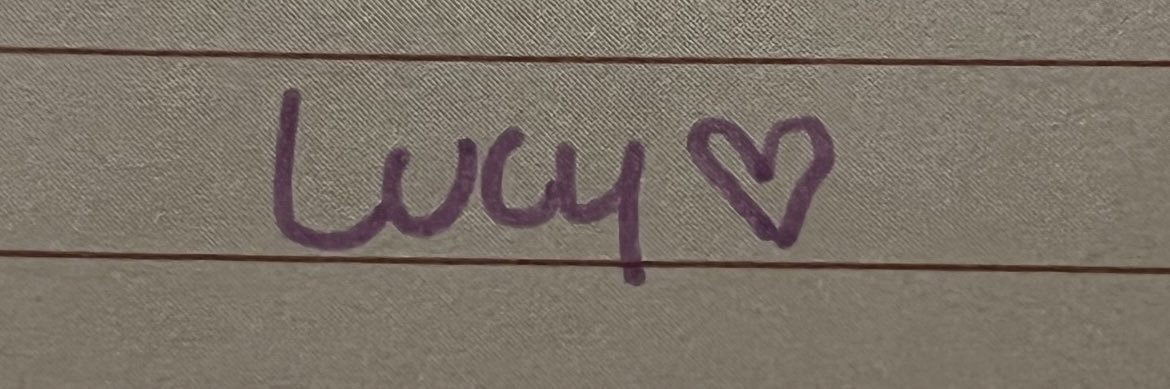 Lucy ♡